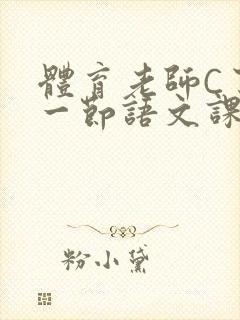 體育老師C了
一節語文課
粉小黛